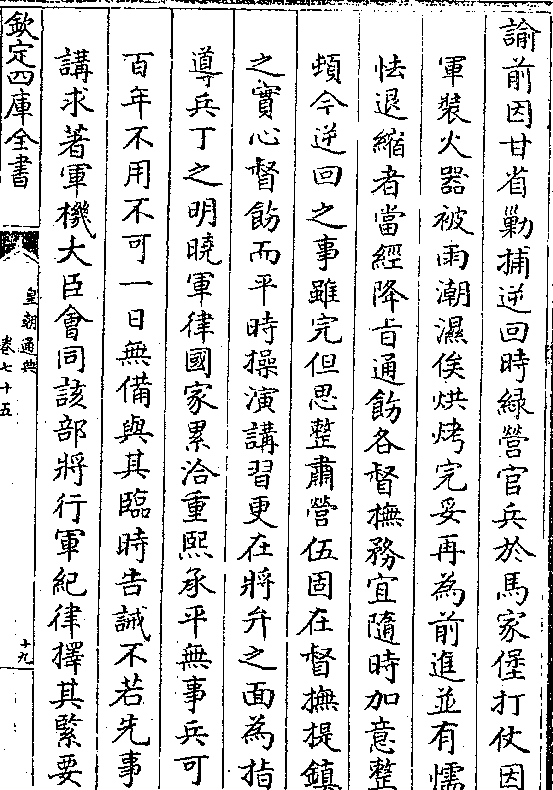 諭前因甘省勦捕逆回時緑營官兵於馬家堡打仗因
軍裝火器被雨潮濕俟烘烤完妥再為前進並有懦
怯退縮者當經降㫖通飭各督撫務宜隨時加意整
頓今逆回之事雖完但思整肅營伍固在督撫提鎮
之實心督飭而平時操演講習更在將弁之面為指
導兵丁之明曉軍律國家累洽重熙承平無事兵可
百年不用不可一日無備與其臨時告誡不若先事
講求著軍機大臣會同該部將行軍紀律擇其緊要
欽定四庫全書
皇朝通典
卷七十五
十九